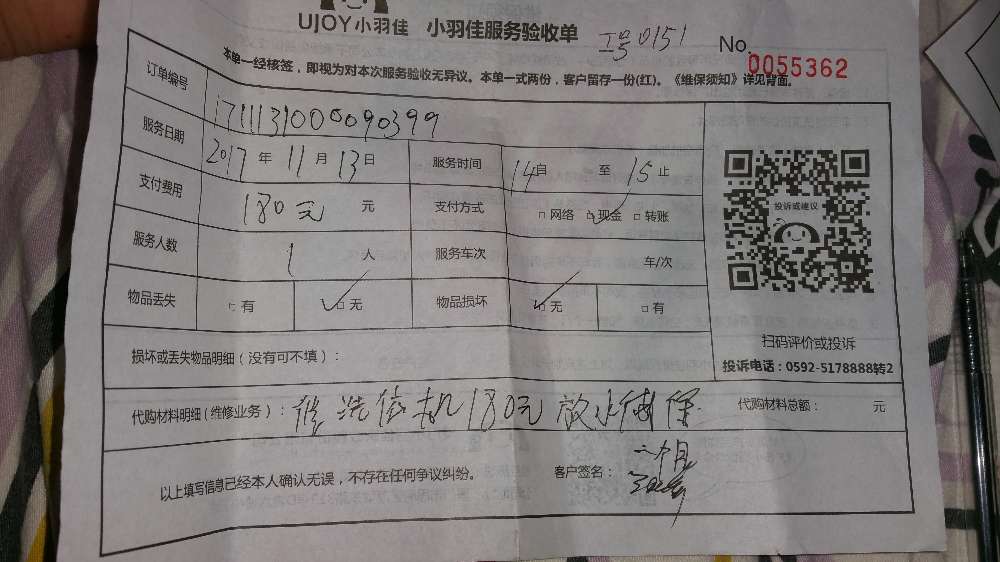 UJOY小羽佳 小羽佳服务验收单 工号0151 No.0055362
本单一经核签，即视为对本次服务验收无异议。本单一式两份，客户留存一份(红)。《维保须知》详见背面。
订单编号 171113100009039​9
服务日期 2017年11月13日 服务时间 14自至15止
支付费用 180元 元 支付方式 □网络 □现金 □转账
服务人数 1 人 服务车次 车/次
物品丢失 □有 □无 物品损坏 □无 □有
投诉或建议
扫码评价或投诉
投诉电话：0592-5178888转2
损坏或丢失物品明细（没有可不填）：
代购材料明细(维修业务)：修洗依机180元放水 保 代购材料总额： 元
二个月
以上填写信息已经本人确认无误，不存在任何争议纠纷。 客户签名：